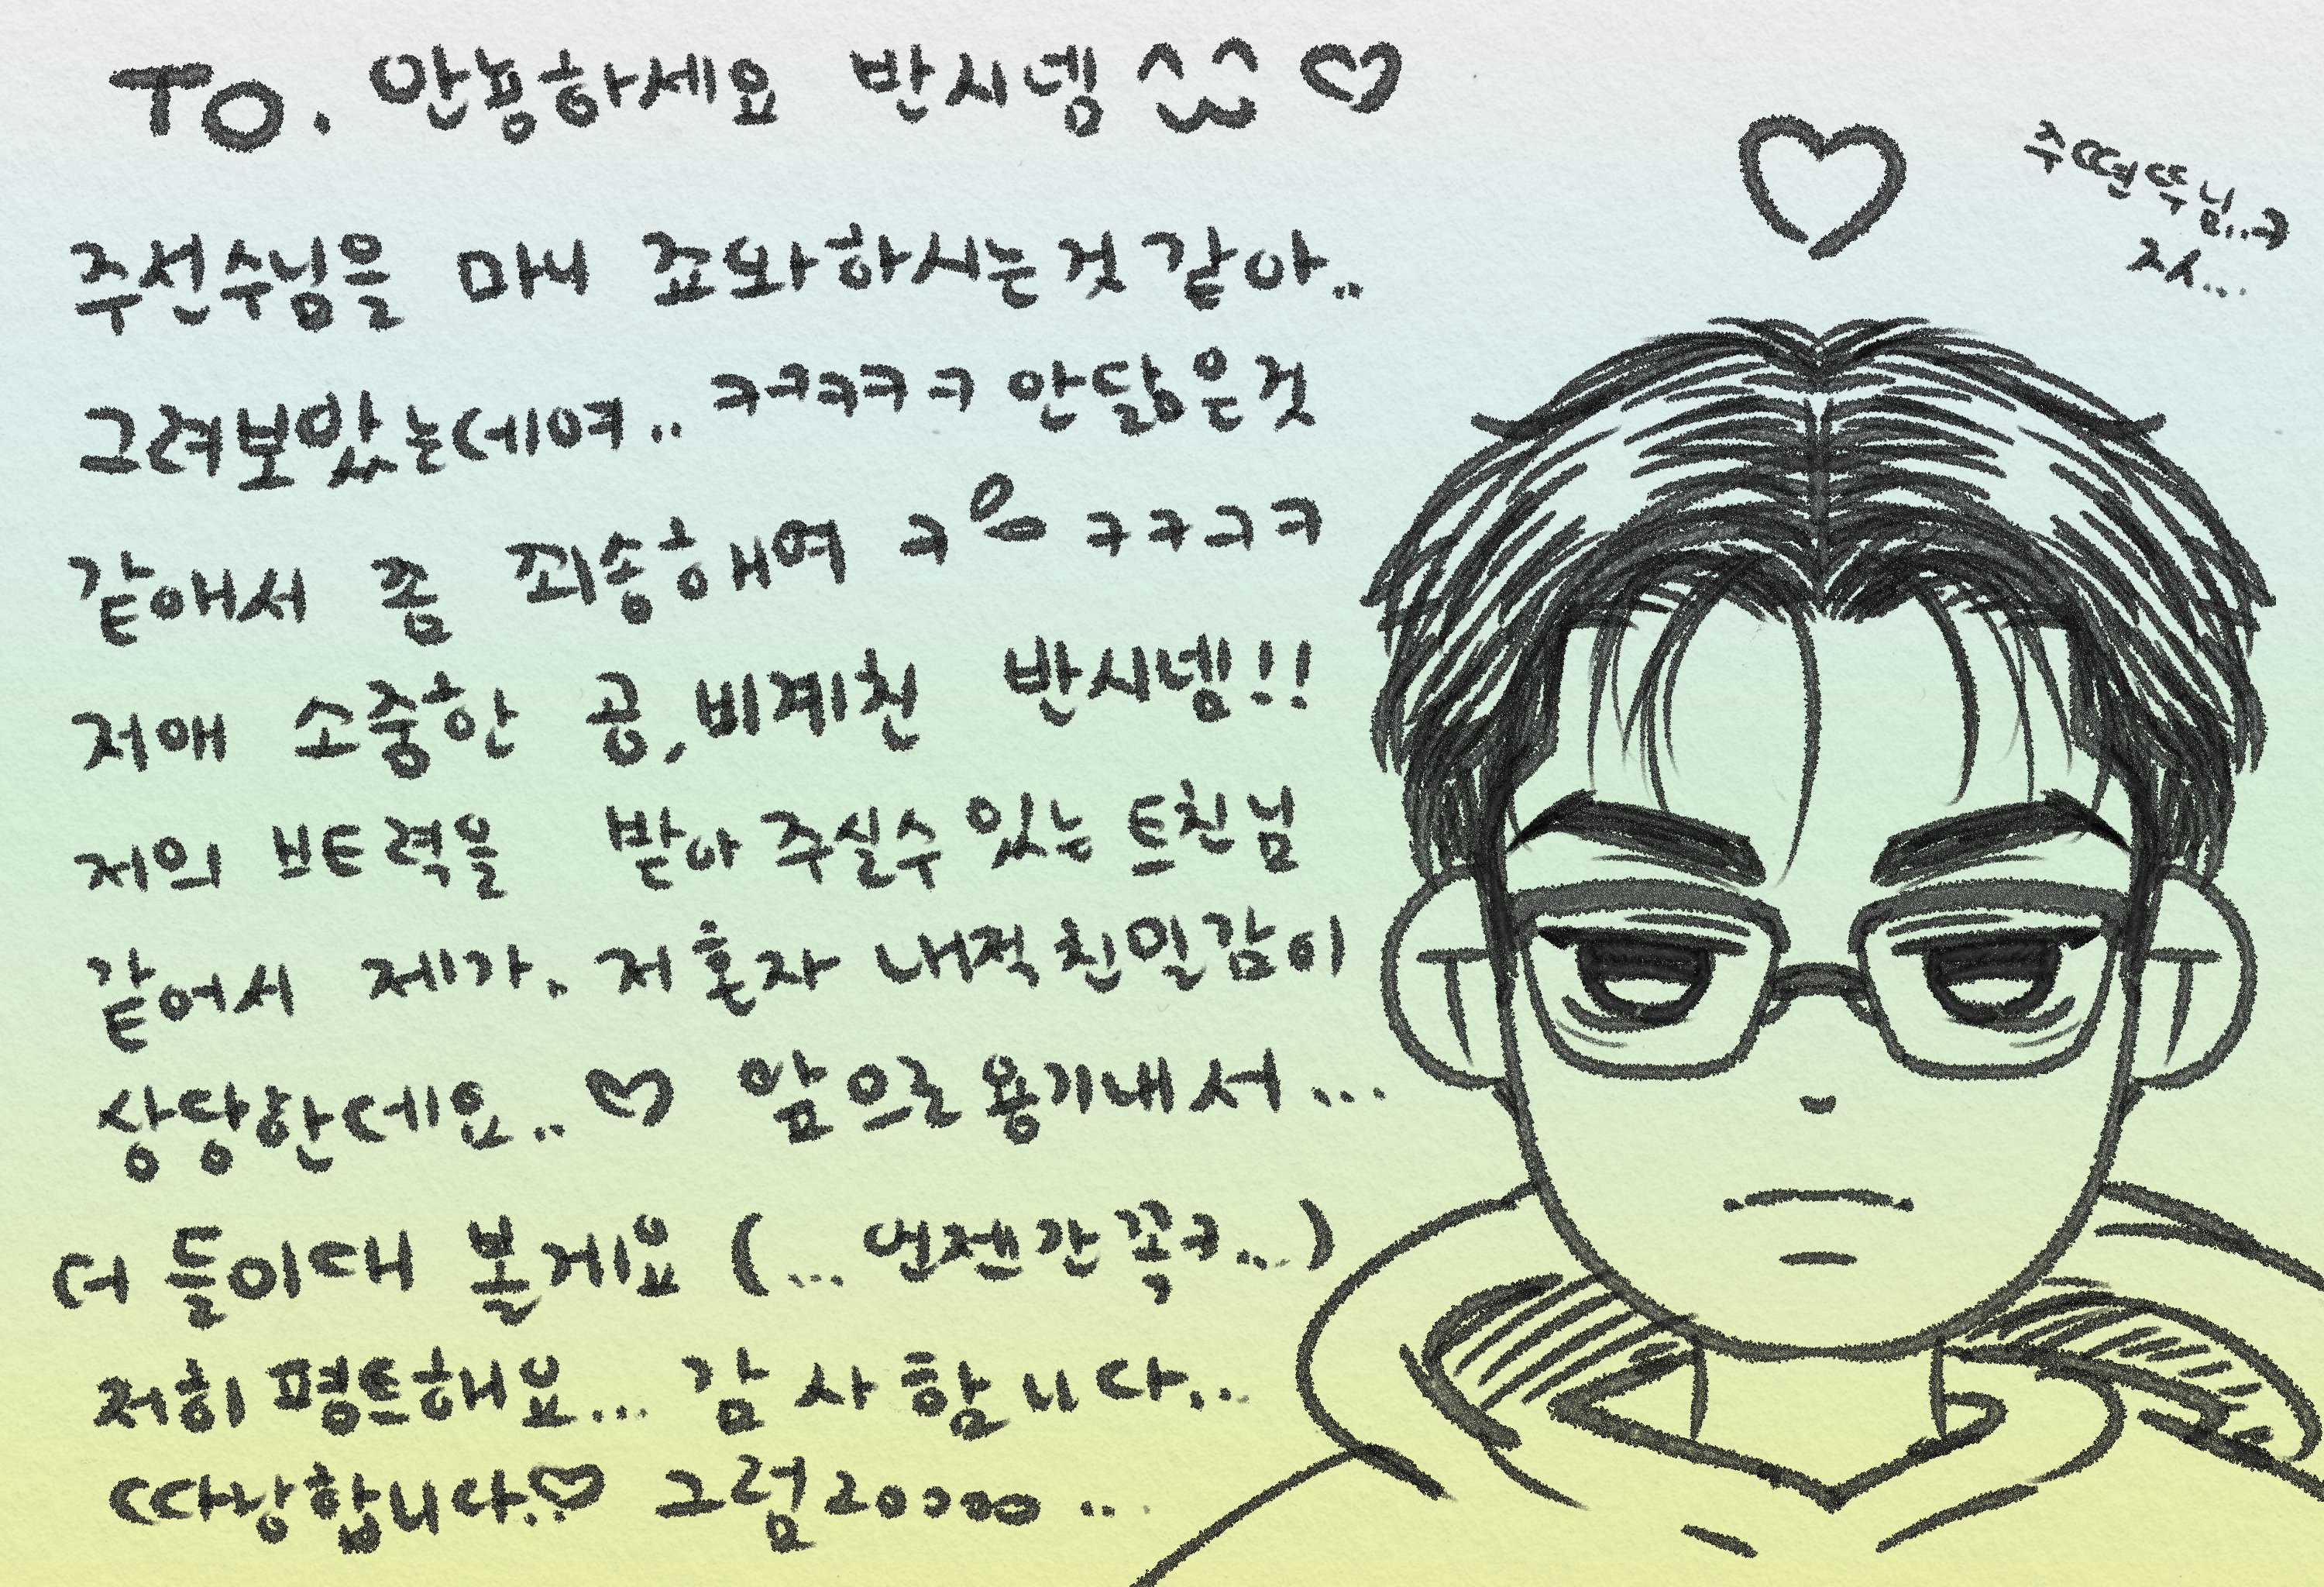 TO. 안뇽하세요 반시넴 ^^ ♡
주선수님을 마니 죠와하시는것 같아..
그려보았는데여.. ㅋㅋㅋㅋㅋ 안닮은것
같애서 좀 죄송해여 ㅋㅋㅋㅋㅋ
저애 소중한 공,비계친 반시넴!!
저의 ㅂㅌ력을 받아주실수있는 트친님
같어서 제가. 저혼자 내적친밀감이
상당한데요..♡ 앞으로 용기내서...
더 들이대 볼게요 (... 언젠간꼭ㅋ...)
저희 평트해요... 감사함니다..
따랑합니다..♡ 그럼 20000..
♡
주떤뚜님..ㅋ
ㅈㅅ...